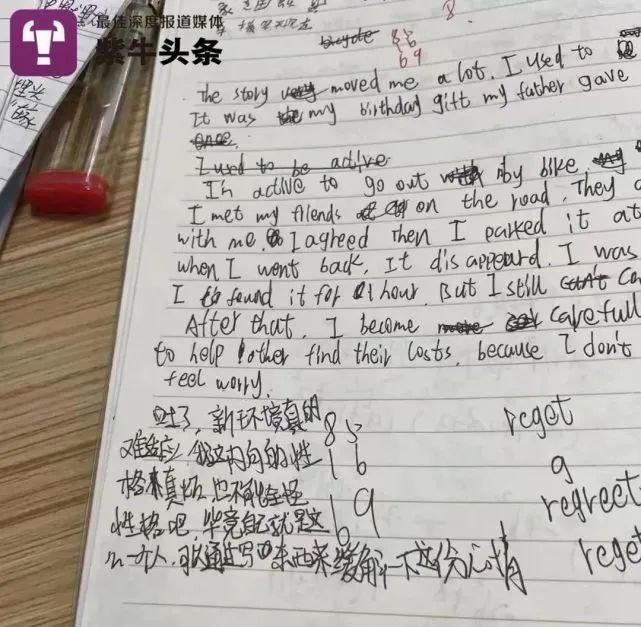 最佳深度报道媒体
紫牛头条
8
bicycle 85
69
The story moved me a lot. I used to
It was my birthday gift my father gave
I used to be active
In active to go out by bike.
I met my friends on the road. They
with me. I agreed then I parked it at
when I went back, It disappeard. I was
I found it for 1 hour. But I still can't
After that, I become carefull
to help other find their losts, because I don't
feel worry.
吐了,新环境真的 85 reget
难适应,我这内向的性 16 g
格真 也不能全怪 19 regreet
性格吧,毕竟自己就是这 6
么一个人,可以通过写 东西来缓解一下这份心情 reget